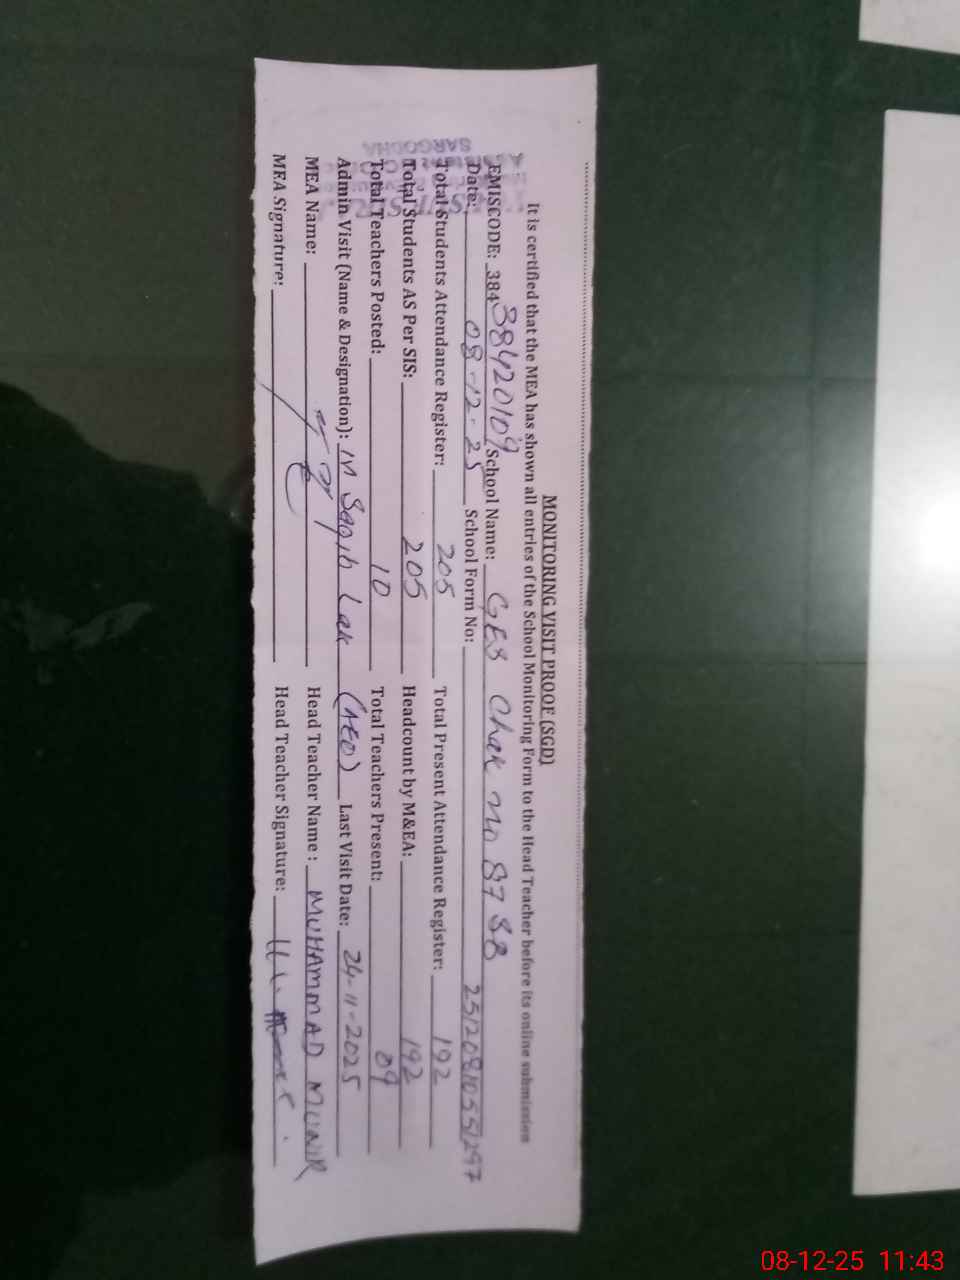 MONITORING VISIT PROOF (SGD)
It is certified that the MEA has shown all entries of the School Monitoring Form to the Head Teacher before its online submission
EMISCODE: 384 38420109 School Name: GES Chak no 87 SB
Date: 08-12-25 School Form No: 25120810551297
Total Students Attendance Register: 205 Total Present Attendance Register: 192
Total Students AS Per SIS: 205 Headcount by M&EA: 192
Total Teachers Posted: 10 Total Teachers Present: 09
Admin Visit (Name & Designation): Lak (AEO) Last Visit Date: 24-11-2025
MEA Name: Head Teacher Name: MUHAMMAD MUNIR
MEA Signature: Head Teacher Signature:
SARGODHA
08-12-25 11:43